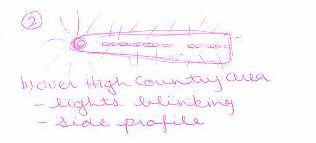 2
b) over High Country area
- lights blinking
- side profile